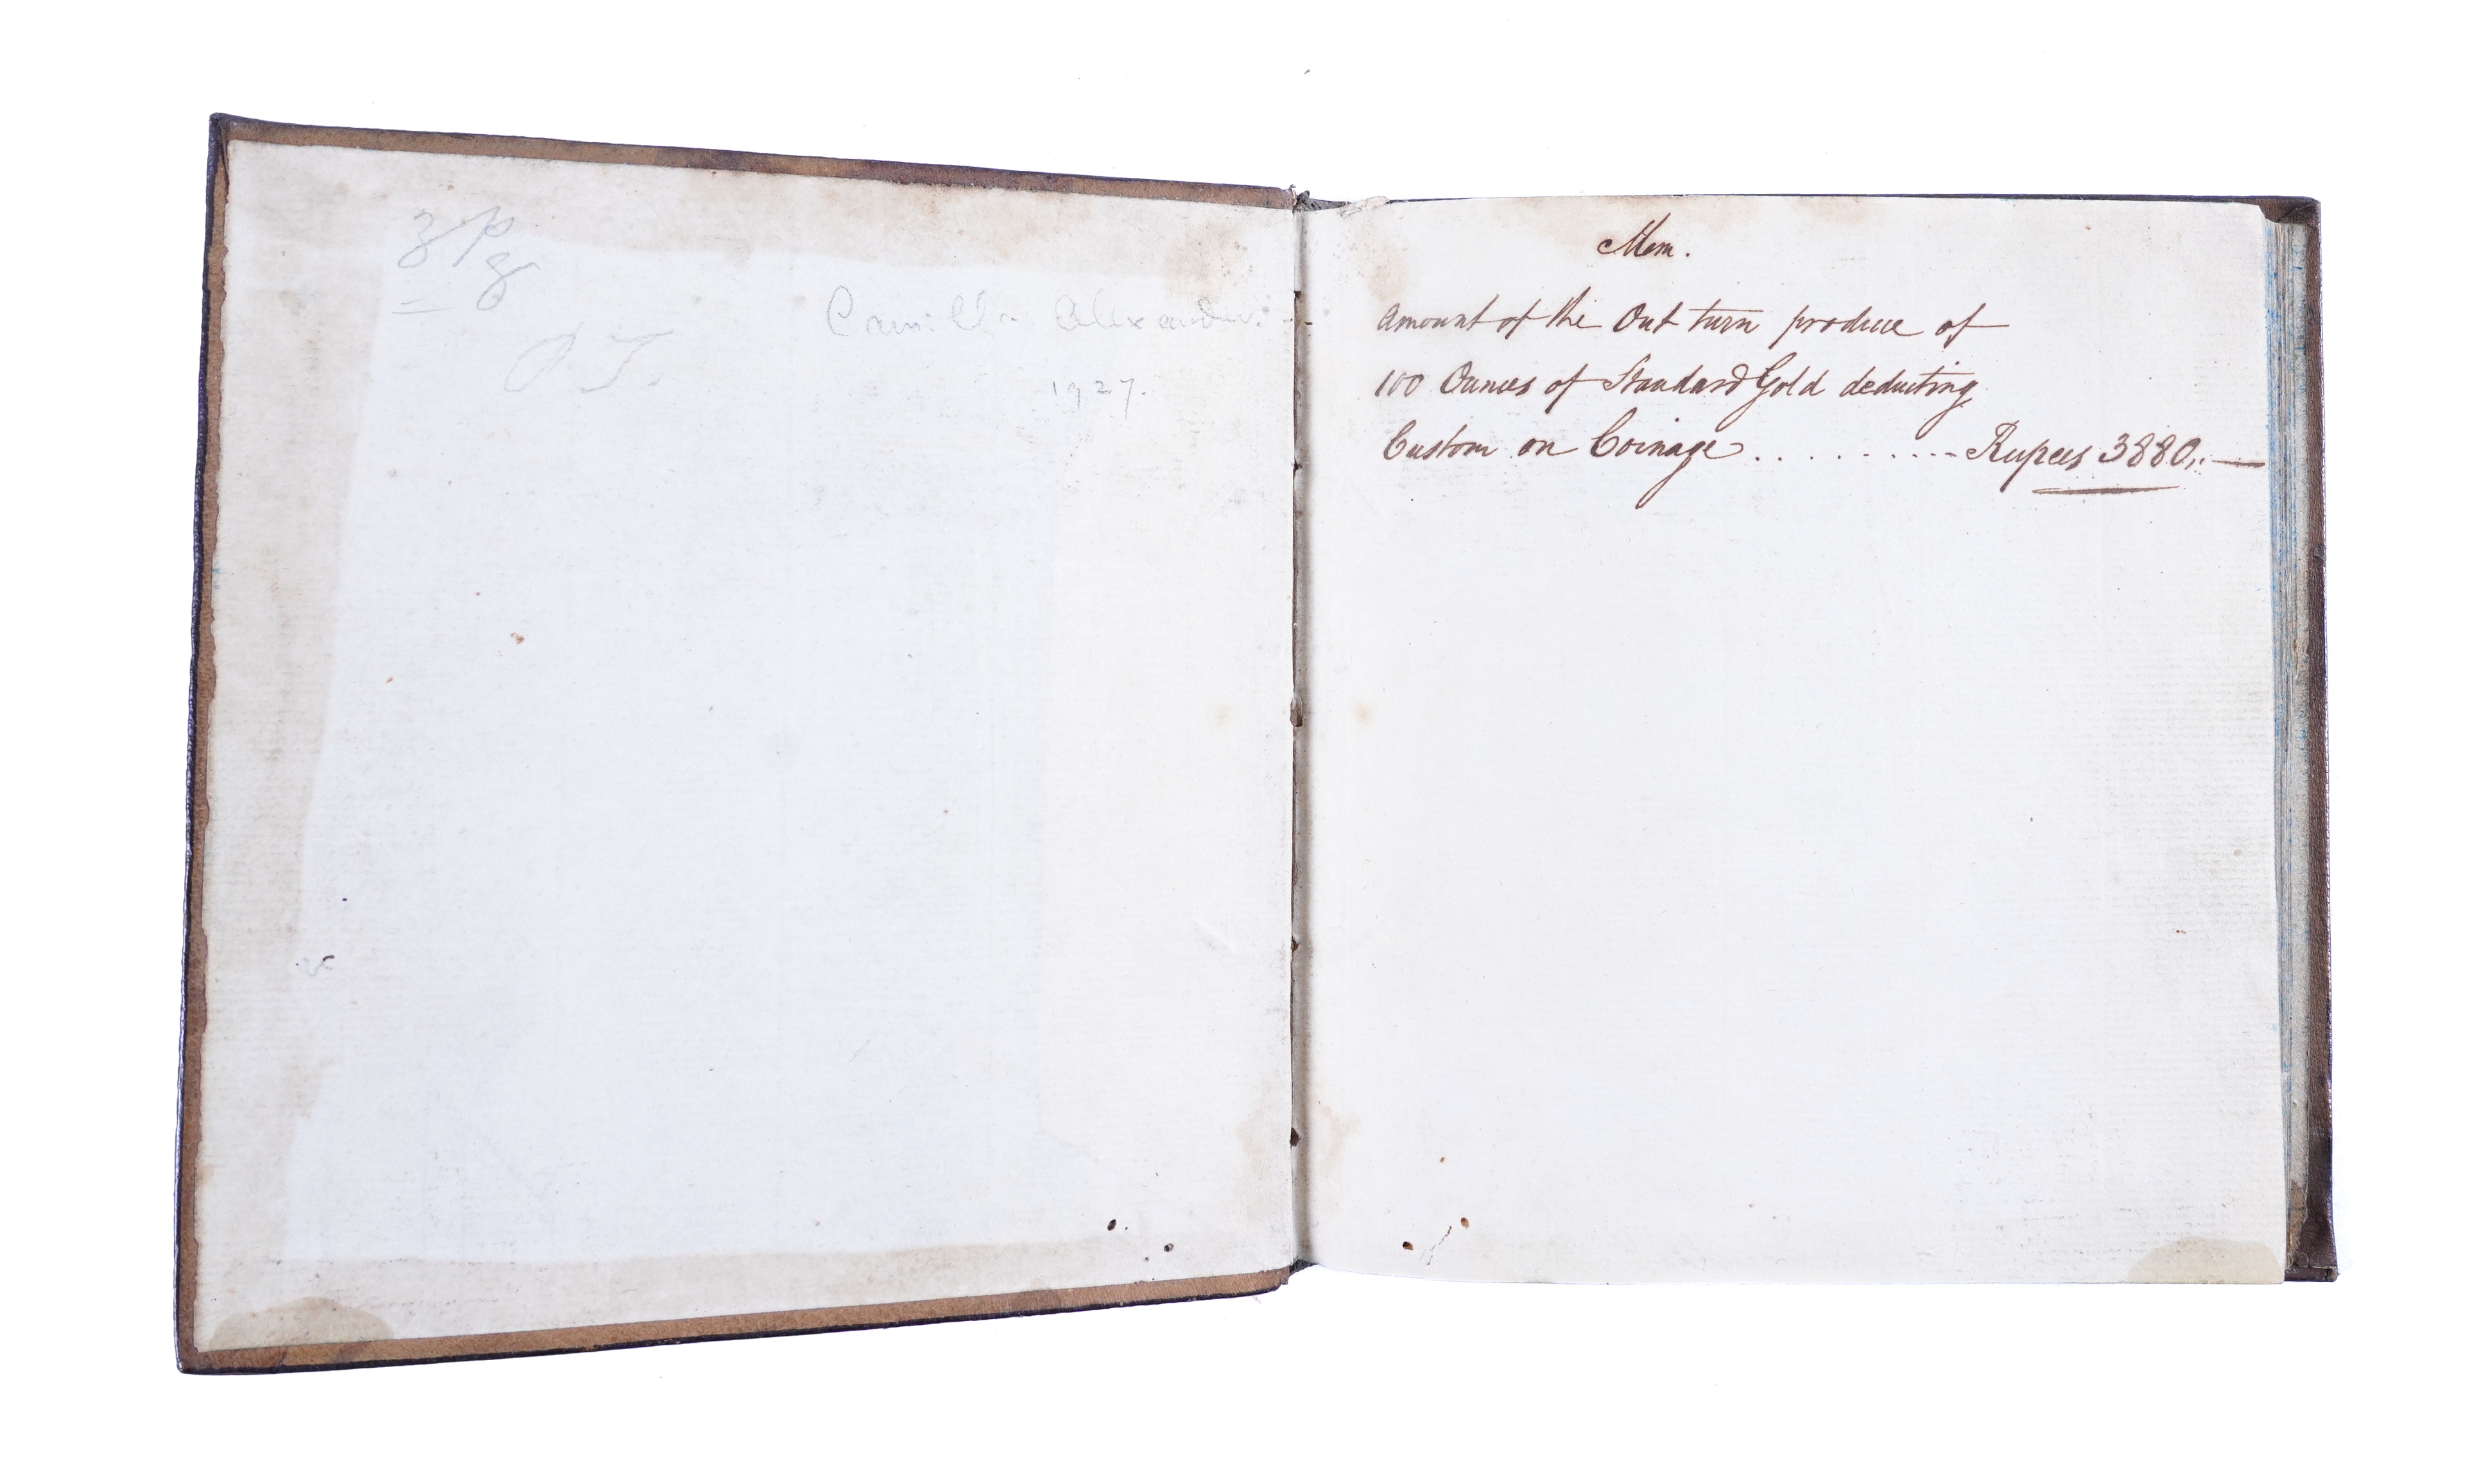 Camilla Alexander.
1927.
Mem.
Amount of the Out turn produce of
100 Ounces of Standard Gold deducting
Custom on Coinage .......... Rupees 3880,.—